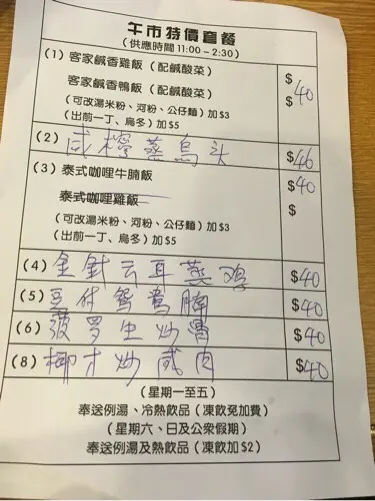 午市特價套餐
(供應時間11:00-2:30)
(1) 客家鹹香雞飯 (配鹹酸菜) $
客家鹹香鴨飯 (配鹹酸菜) $40
(可改湯米粉、河粉、公仔麵) 加$3
(出前一丁、烏冬) 加$5
(2) 咸檸蒸烏头 $46
(3) 泰式咖哩牛腩飯 $40
泰式咖哩雞飯 $
(可改湯米粉、河粉、公仔麵) 加$3
(出前一丁、烏冬) 加$5
(4) 金針云耳蒸鸡 $40
(5) 豆付鴛鴦腩 $40
(6) 菠罗生炒骨 $40
(8) 椰才炒咸肉 $40
(星期一至五)
奉送例湯、冷熱飲品 (凍飲免加費)
(星期六、日及公眾假期)
奉送例湯及熱飲品 (凍飲加$2)